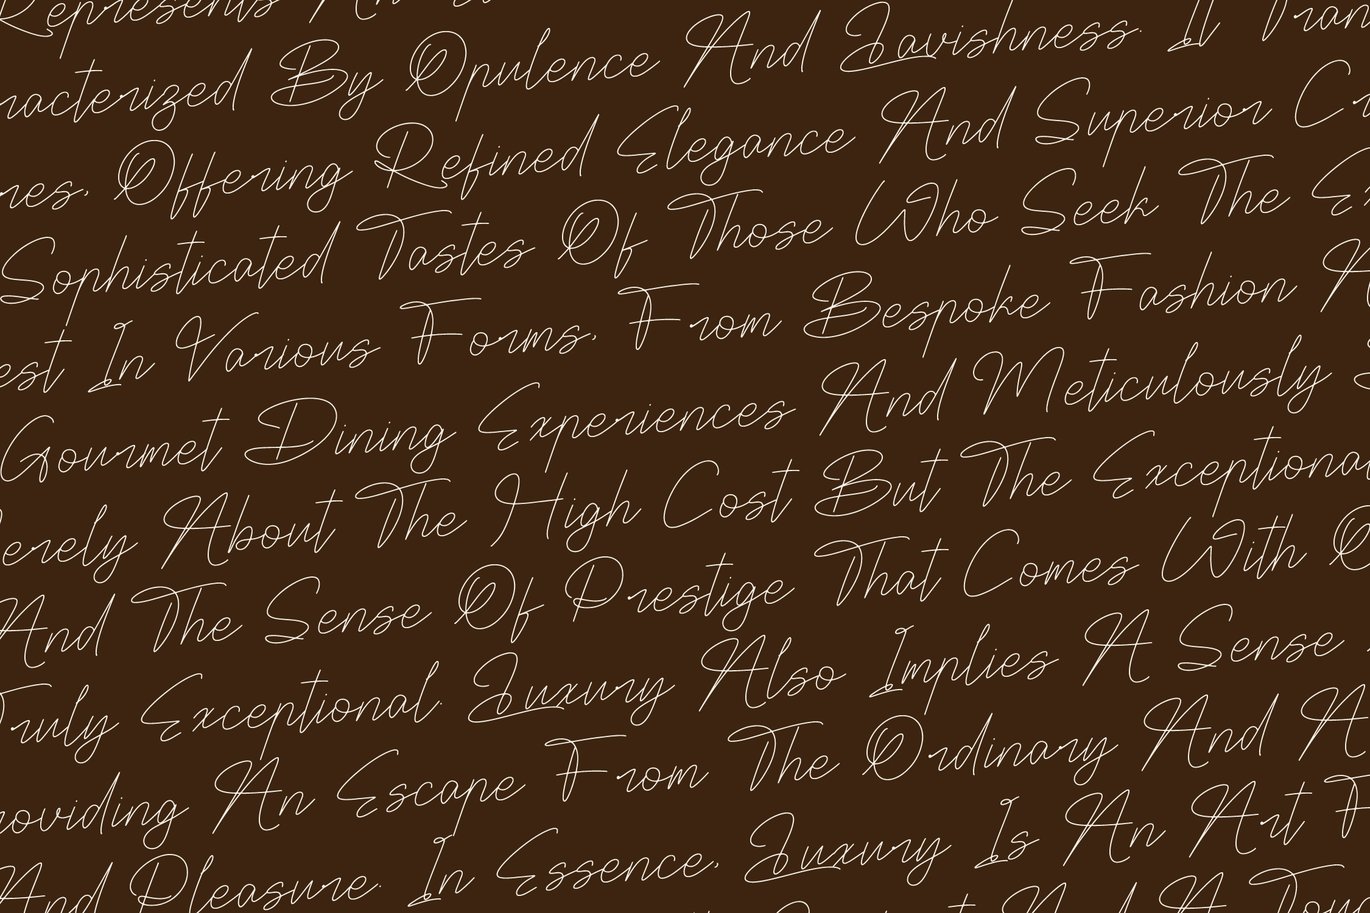 Represents An
racterized By Opulence And Lavishness. It Tran
nes, Offering Refined Elegance And Superior Cr
Sophisticated Tastes Of Those Who Seek The E
est In Various Forms, From Bespoke Fashion A
Gourmet Dining Experiences And Meticulously
erely About The High Cost But The Exceptional
And The Sense Of Prestige That Comes With O
Truly Exceptional. Luxury Also Implies A Sense
roviding An Escape From The Ordinary And A
And Pleasure. In Essence, Luxury Is An Art F
And A Touc